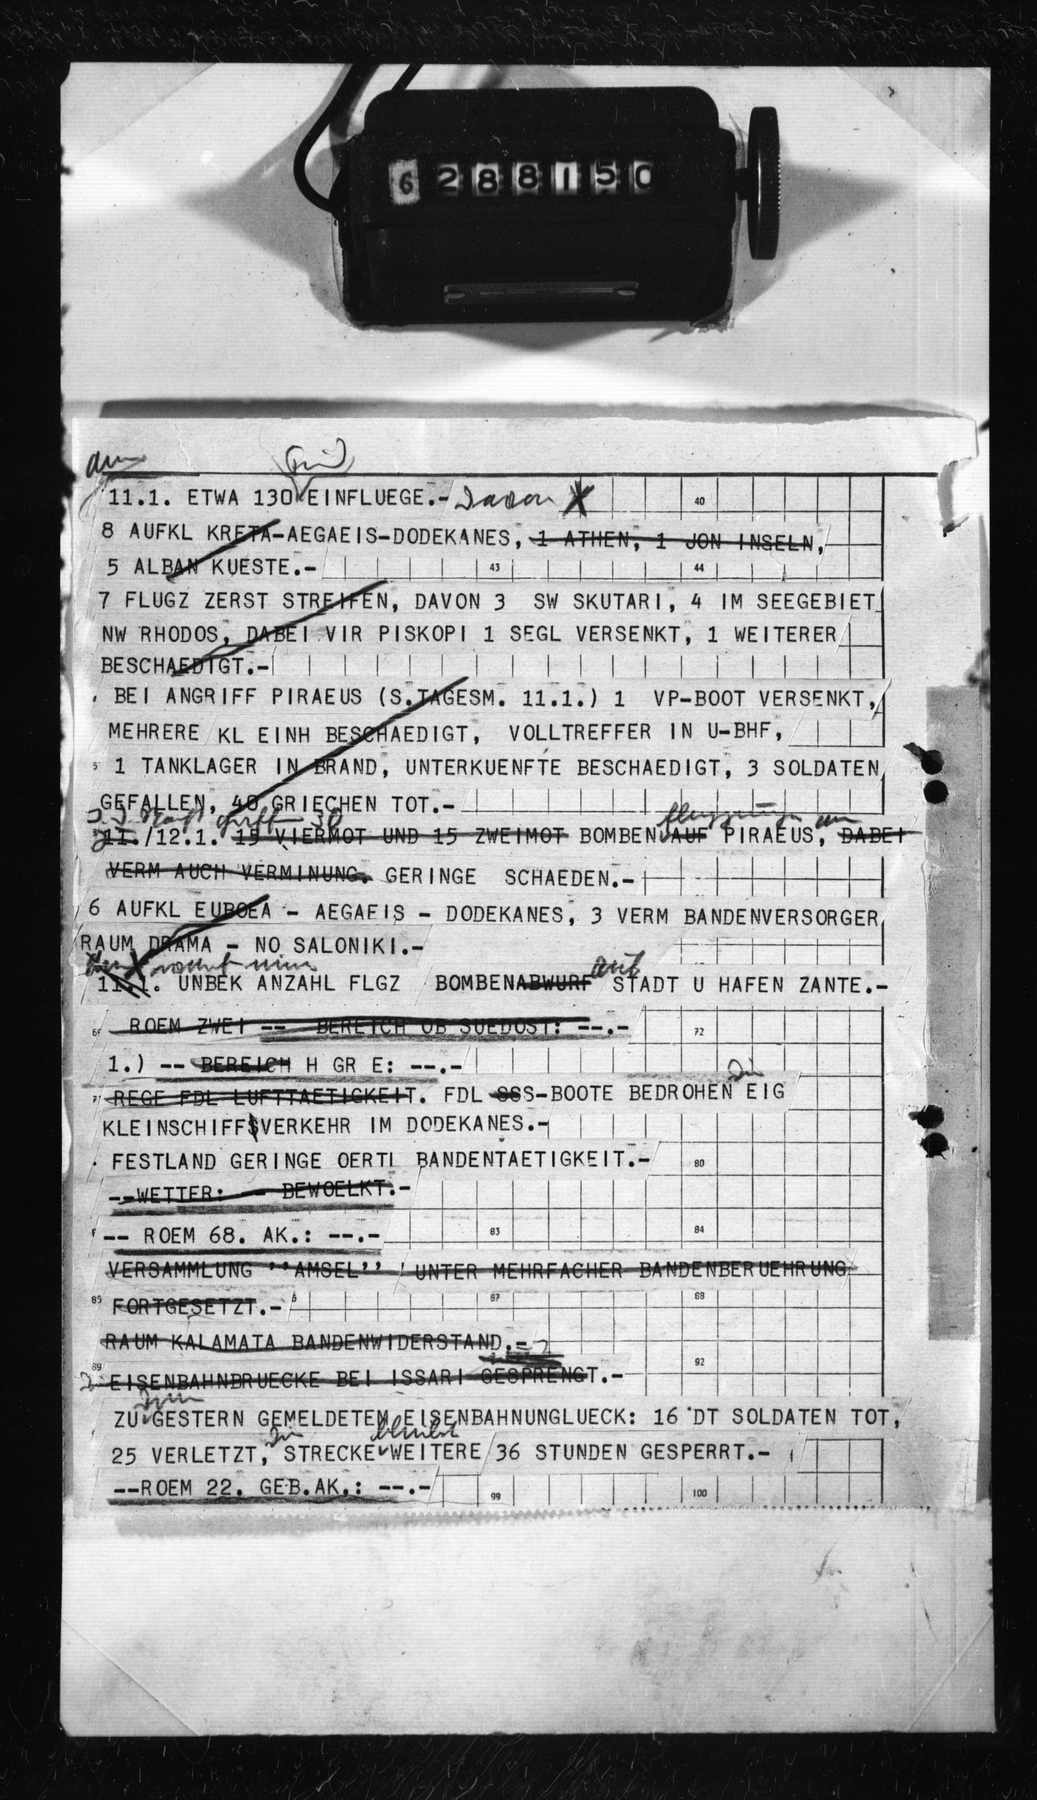 6288150
am
11.1. ETWA 130 EINFLUEGE.- Davon
40
8 AUFKL KRETA-AEGAEIS-DODEKANES, 1 ATHEN, 1 JON INSELN,
5 ALBAN KUESTE.-
43 44
7 FLUGZ ZERST STREIFEN, DAVON 3 SW SKUTARI, 4 IM SEEGEBIET
NW RHODOS, DABEI VIR PISKOPI 1 SEGL VERSENKT, 1 WEITERER
BESCHAEDIGT.-
BEI ANGRIFF PIRAEUS (S.TAGESM. 11.1.) 1 VP-BOOT VERSENKT,
MEHRERE KL EINH BESCHAEDIGT, VOLLTREFFER IN U-BHF,
1 TANKLAGER IN BRAND, UNTERKUENFTE BESCHAEDIGT, 3 SOLDATEN
GEFALLEN, 40 GRIECHEN TOT.-
30 flugzeuge an
11./12.1. 15 VIERMOT UND 15 ZWEIMOT BOMBEN AUF PIRAEUS, DABEI
VERM AUCH VERMINUNG. GERINGE SCHAEDEN.-
6 AUFKL EUBOEA - AEGAEIS - DODEKANES, 3 VERM BANDENVERSORGER
RAUM DRAMA - NO SALONIKI.-
auf
11.1. UNBEK ANZAHL FLGZ BOMBENABWURF STADT U HAFEN ZANTE.-
ROEM ZWEI -- BEREICH OB SUEDOST: --.-
72
1.) -- BEREICH H GR E: --.-
die
REGE FDL LUFTTAETIGKEIT. FDL SSS-BOOTE BEDROHEN EIG
KLEINSCHIFFSVERKEHR IM DODEKANES.-
FESTLAND GERINGE OERTL BANDENTAETIGKEIT.-
80
--WETTER: -- BEWOELKT.-
-- ROEM 68. AK.: --.-
83 84
VERSAMMLUNG ''AMSEL'' UNTER MEHRFACHER BANDENBERUEHRUNG
85 FORTGESETZT.-
87 88
RAUM KALAMATA BANDENWIDERSTAND.-
89 92
EISENBAHNBRUECKE BEI ISSARI GESPRENGT.-
dem
ZU GESTERN GEMELDETEM EISENBAHNUNGLUECK: 16 DT SOLDATEN TOT,
die bleibt
25 VERLETZT, STRECKE WEITERE 36 STUNDEN GESPERRT.-
--ROEM 22. GEB.AK.: --.-
99 100